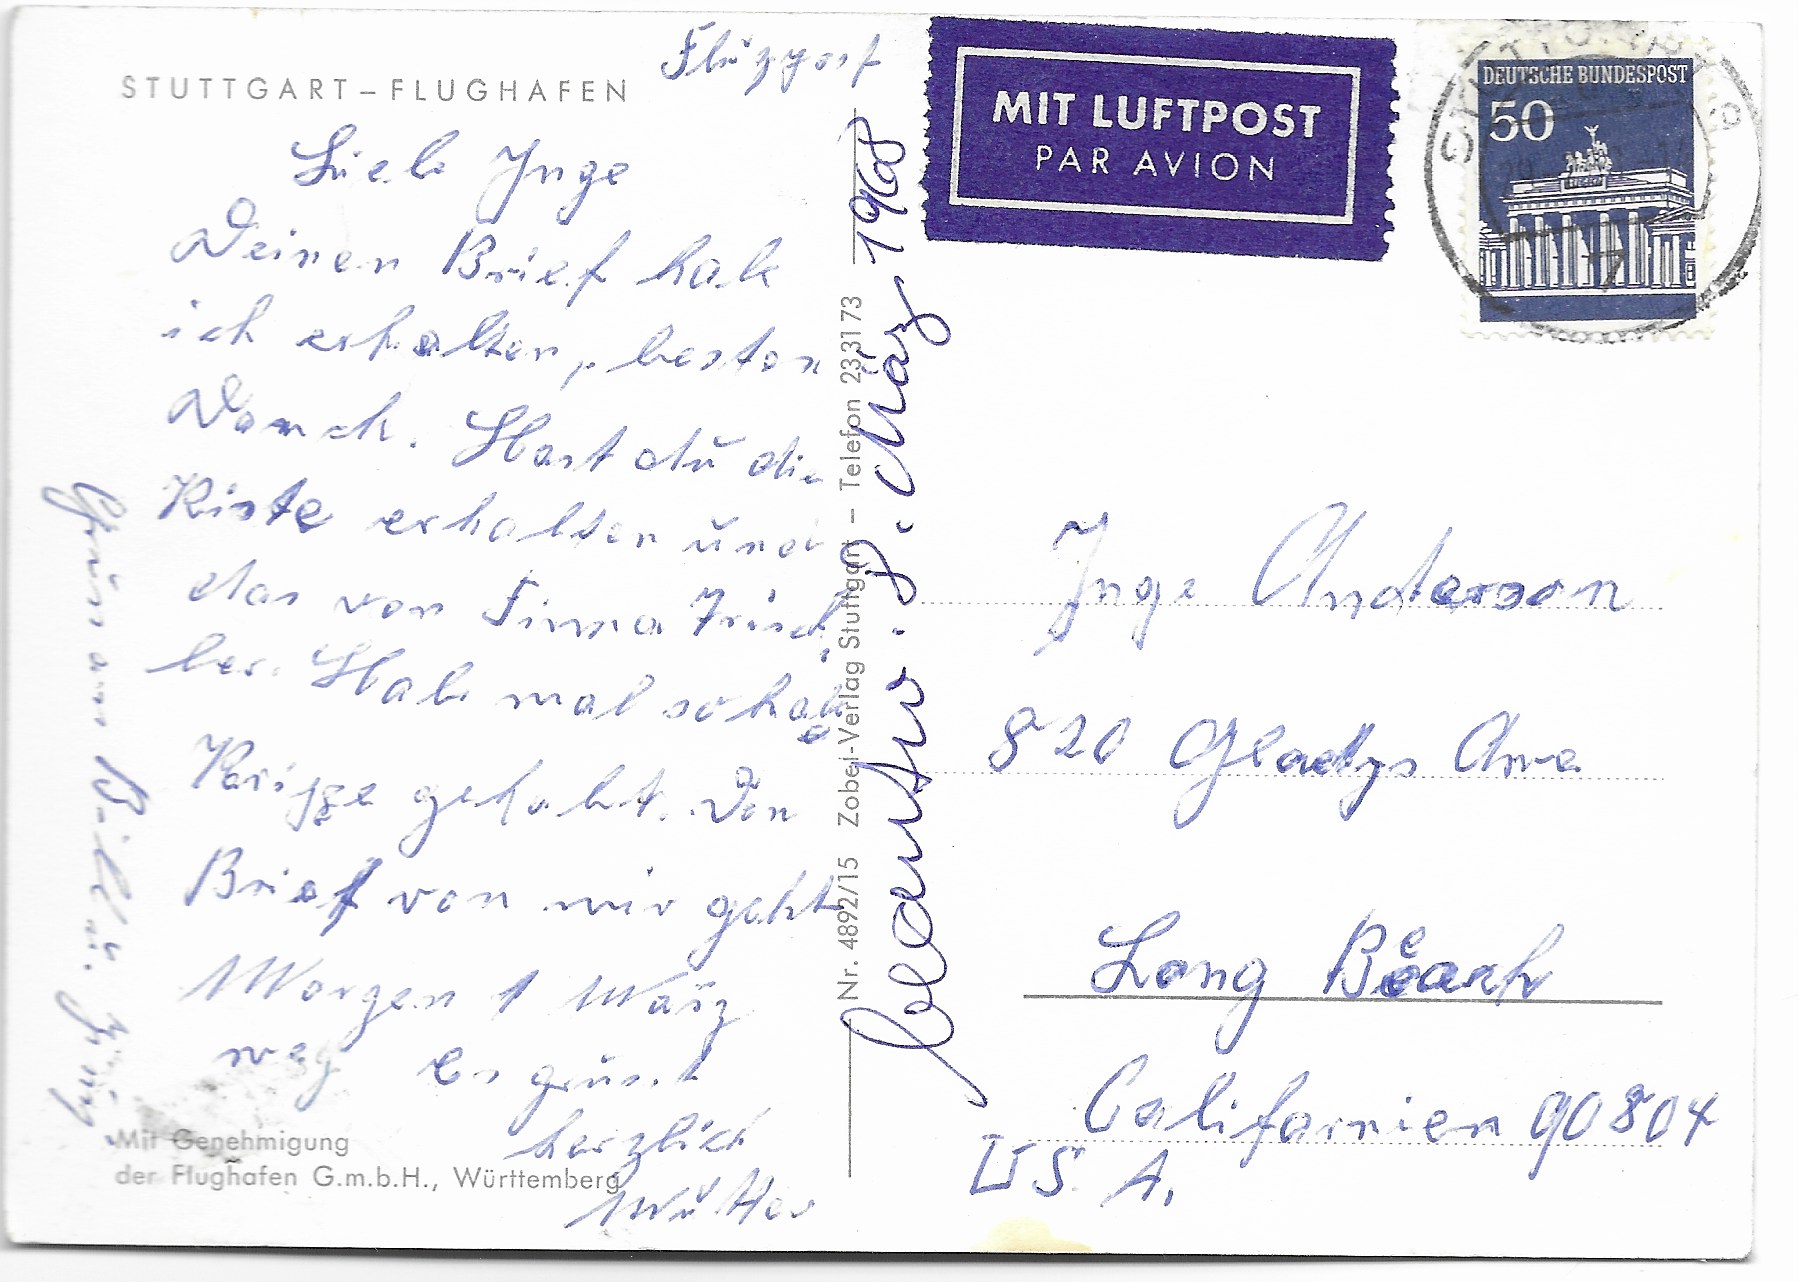 STUTTGART – FLUGHAFEN
Flugpost
Liebe Inge
Deinen Brief habe
ich erhalten, besten
Danck. Hast du die
Kiste erhalten und
das von Firma
ber. Habe mal so habe
gehabt. Den
Brief von mir geht
Morgen 1 März
weg Es grüst
herzlich
Mutter
Grüse an Bill u.
Mit Genehmigung
der Flughafen G.m.b.H., Württemberg
Nr. 4892/15 Zobel-Verlag Stuttgart – Telefon 233173
beantw. 8. März 1968
MIT LUFTPOST
PAR AVION
DEUTSCHE BUNDESPOST
50
7
Inge Anderson
820 Gladys Ave
Long Beach
Californien 90804
U S. A.